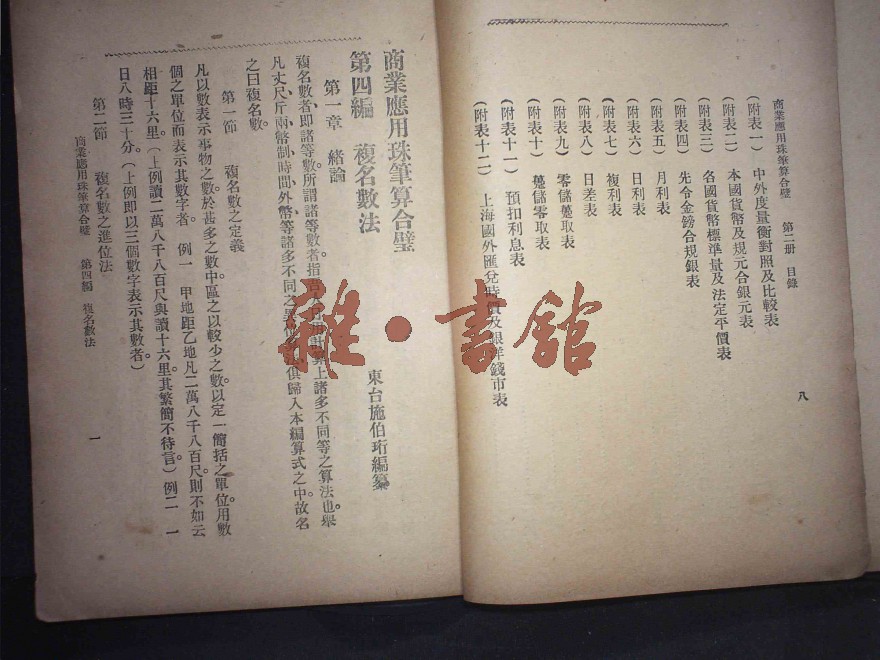 商業應用珠筆算合璧　第二册　目錄
八
(附表一)　中外度量衡對照及比較表
(附表二)　本國貨幣及規元合銀元表
(附表三)　各國貨幣標準量及法定平價表
(附表四)　先令金鎊合規銀表
(附表五)　月利表
(附表六)　日利表
(附表七)　複利表
(附表八)　日差表
(附表九)　零儲躉取表
(附表十)　躉儲零取表
(附表十一)　預扣利息表
(附表十二)　上海國外匯兌時價及銀洋錢市表
商業應用珠筆算合璧
東台施伯珩編纂
第四編　複名數法
第一章　緒論
複名數者、即諸等數。所謂諸等數者指
上諸多不同等之算法也舉
凡丈、尺、斤、兩、幣制、時間、外幣、等諸多不同之
俱歸入本編算式之中。故名
之曰複名數。
第一節　複名數之定義
凡以數表示事物之數。於甚多之數中。區之以較少之數。以定一簡括之單位。用數
個之單位而表示其數字者　例一　甲地距乙地凡二萬八千八百尺。則不如云
相距十六里。(上例讀二萬八千八百尺與讀十六里。其繁簡不待言)例二　一
日八時三十分。(上例即以三個數字表示其數者。)
第二節　複名數之進位法
商業應用珠筆算合璧　第四編　複名數法
一
雜·書館